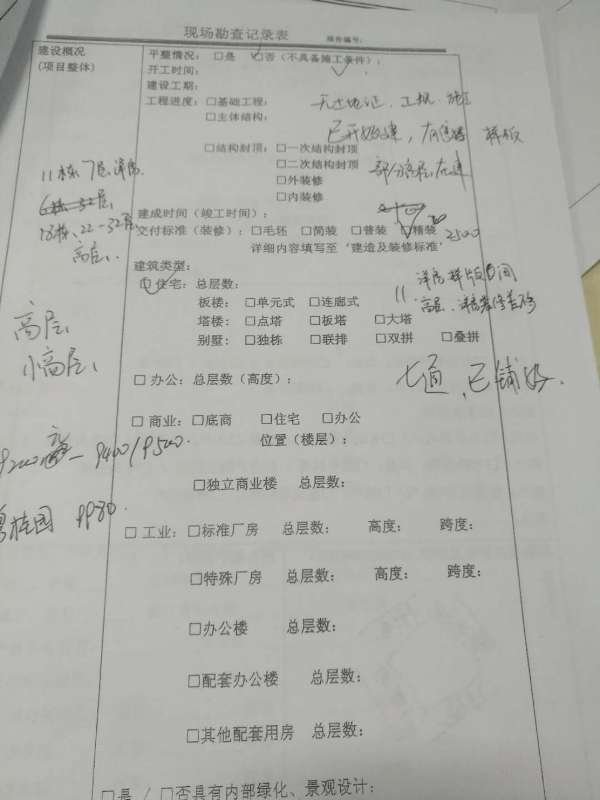 现场勘查记录表 报告编号:
建设概况
(项目整体)
平整情况: □是 □否(不具备施工条件);
开工时间:
建设工期:
工程进度: □基础工程:
□主体结构:
已开始建, 有 样板
□结构封顶: □一次结构封顶
□二次结构封顶
部分高层在建
□外装修
□内装修
11栋 7层洋房.
6栋 32层,
13栋, 22-32层
高层.
建成时间(竣工时间):
交付标准(装修): □毛坯 □简装 □普装 □精装 2500
详细内容填写至‘建造及装修标准’
建筑类型:
□住宅: 总层数:
板楼: □单元式 □连廊式
塔楼: □点塔 □板塔 □大塔
别墅: □独栋 □联排 □双拼 □叠拼
洋房样板房间
高层、
高层、
小高层、
□办公: 总层数(高度):
七通, 已铺好.
□商业: □底商 □住宅 □办公
位置(楼层):
9400/9500.
□独立商业楼 总层数:
碧桂园 9980.
□工业: □标准厂房 总层数: 高度: 跨度:
□特殊厂房 总层数: 高度: 跨度:
□办公楼 总层数:
□配套办公楼 总层数:
□其他配套用房 总层数:
□是 / □否具有内部绿化、景观设计: